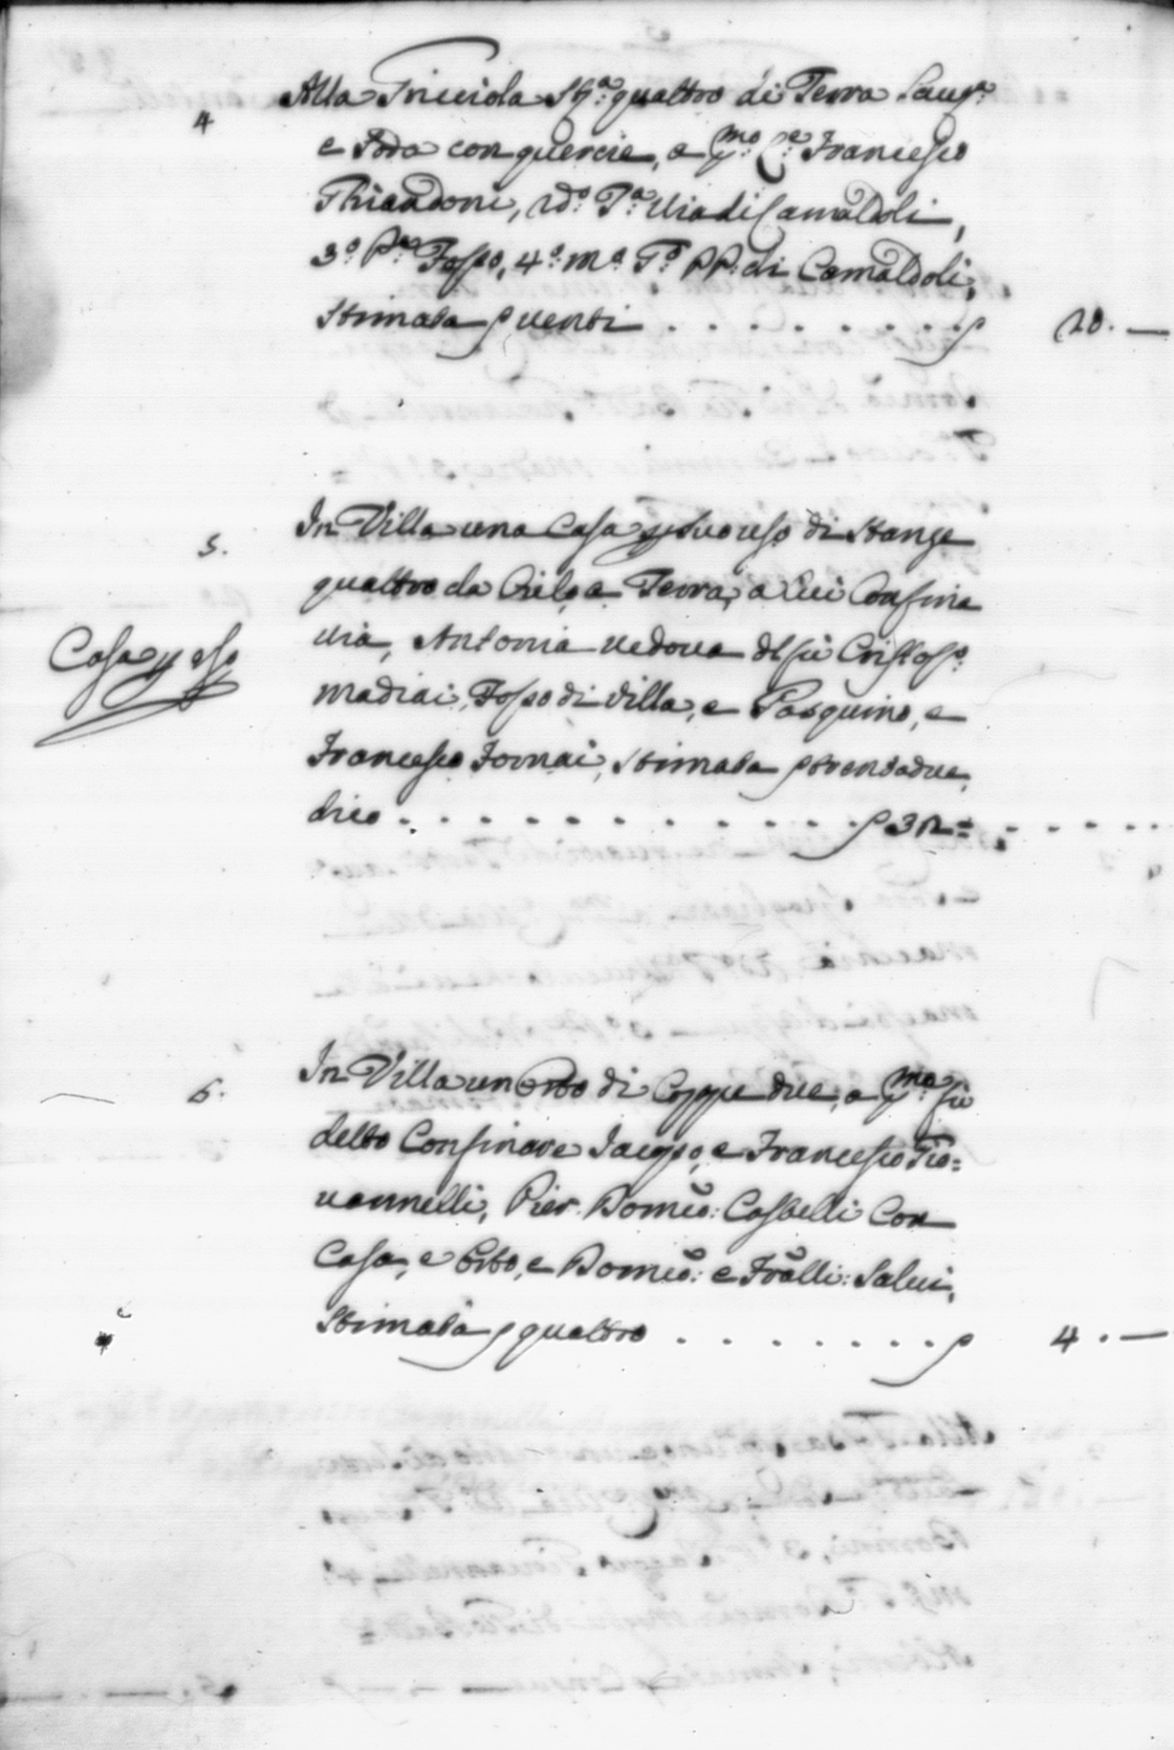 4
Alla Tricciola St.ª quattro di Terra Lau.ª
e Soda con quercie, a p.mo C.e Francesco
2do: T.ª Via di Camaldoli,
3.º P.mo Fosso, 4.º m.º T.º PP. di Camaldoli,
Stimata p venti . . . . . . . . p 20. —
5.
In Villa una Casa p suo uso di Stanze
quattro da Cielo a Terra, a Cui Confina
Casa p uso
Via, Antonia Vedova del fù Cristof.º
Madiai, Fosso di Villa, e Pasquino, e
Francesco Fornai, Stimata p trentadue,
dico . . . . . . . . . . . . p 32 = . . . .
6.
In Villa un Orto di Coppe due, a p.mo fù
detto Confinare Iacopo, e Francesco Gio=
vannelli, Pier Domco: Castelli Con
Casa, e Orto, e Domco: e Fralli: Salvi,
Stimata p quattro . . . . . . . p 4. —